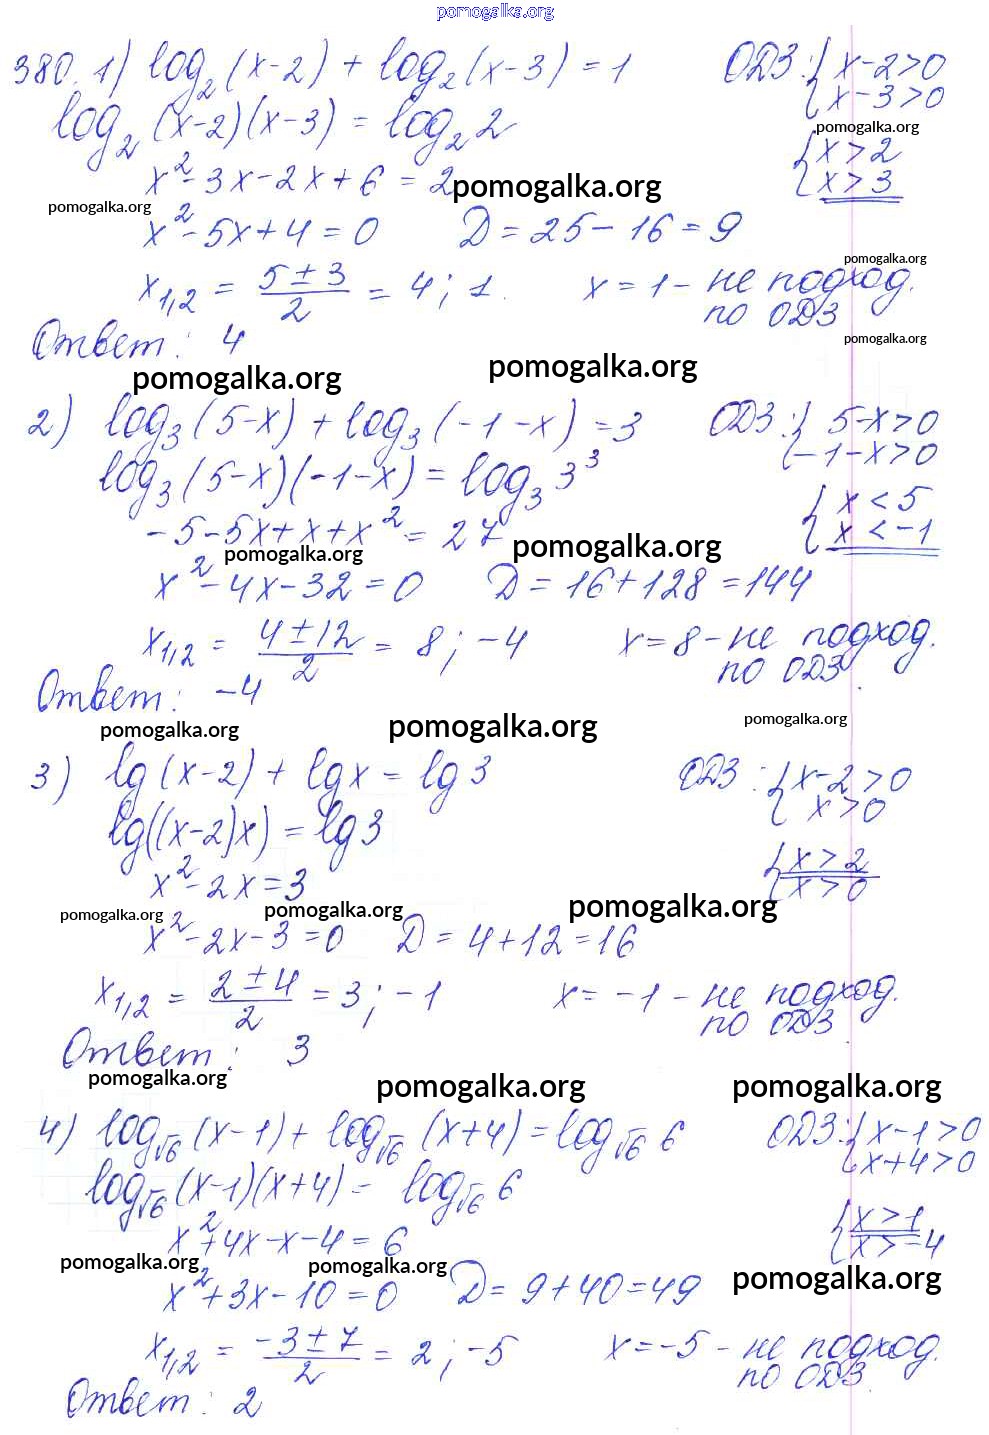 pomogalka.org
380. 1) log₂(x-2) + log₂(x-3) = 1 ОДЗ: { x-2>0
log₂(x-2)(x-3) = log₂2 { x-3>0
pomogalka.org
x²-3x-2x+6 = 2 { x>2
pomogalka.org { x>3
pomogalka.org
x²-5x+4 = 0 D = 25-16 = 9
pomogalka.org
x₁,₂ = (5±3)/2 = 4; 1. x = 1 - не подход.
по ОДЗ
Ответ: 4 pomogalka.org
pomogalka.org pomogalka.org
2) log₃(5-x) + log₃(-1-x) = 3 ОДЗ: { 5-x>0
log₃(5-x)(-1-x) = log₃3³ { -1-x>0
{ x<5
-5-5x+x+x² = 27 { x<-1
pomogalka.org pomogalka.org
x²-4x-32 = 0 D = 16+128 = 144
x₁,₂ = (4±12)/2 = 8; -4 x = 8 - не подход.
по ОДЗ.
Ответ: -4
pomogalka.org pomogalka.org pomogalka.org
3) lg(x-2) + lgx = lg3 ОДЗ: { x-2>0
{ x>0
lg((x-2)x) = lg3
{ x>2
x²-2x=3 { x>0
pomogalka.org pomogalka.org pomogalka.org
x²-2x-3=0 D = 4+12=16
x₁,₂ = (2±4)/2 = 3; -1 x = -1 - не подход.
по ОДЗ.
Ответ: 3
pomogalka.org pomogalka.org pomogalka.org
4) log√6(x-1) + log√6(x+4) = log√6 6 ОДЗ: { x-1>0
{ x+4>0
log√6(x-1)(x+4) = log√6 6
{ x>1
x²+4x-x-4=6 { x>-4
pomogalka.org pomogalka.org pomogalka.org
x²+3x-10=0 D = 9+40=49
x₁,₂ = (-3±7)/2 = 2; -5 x=-5 - не подход.
по ОДЗ.
Ответ: 2